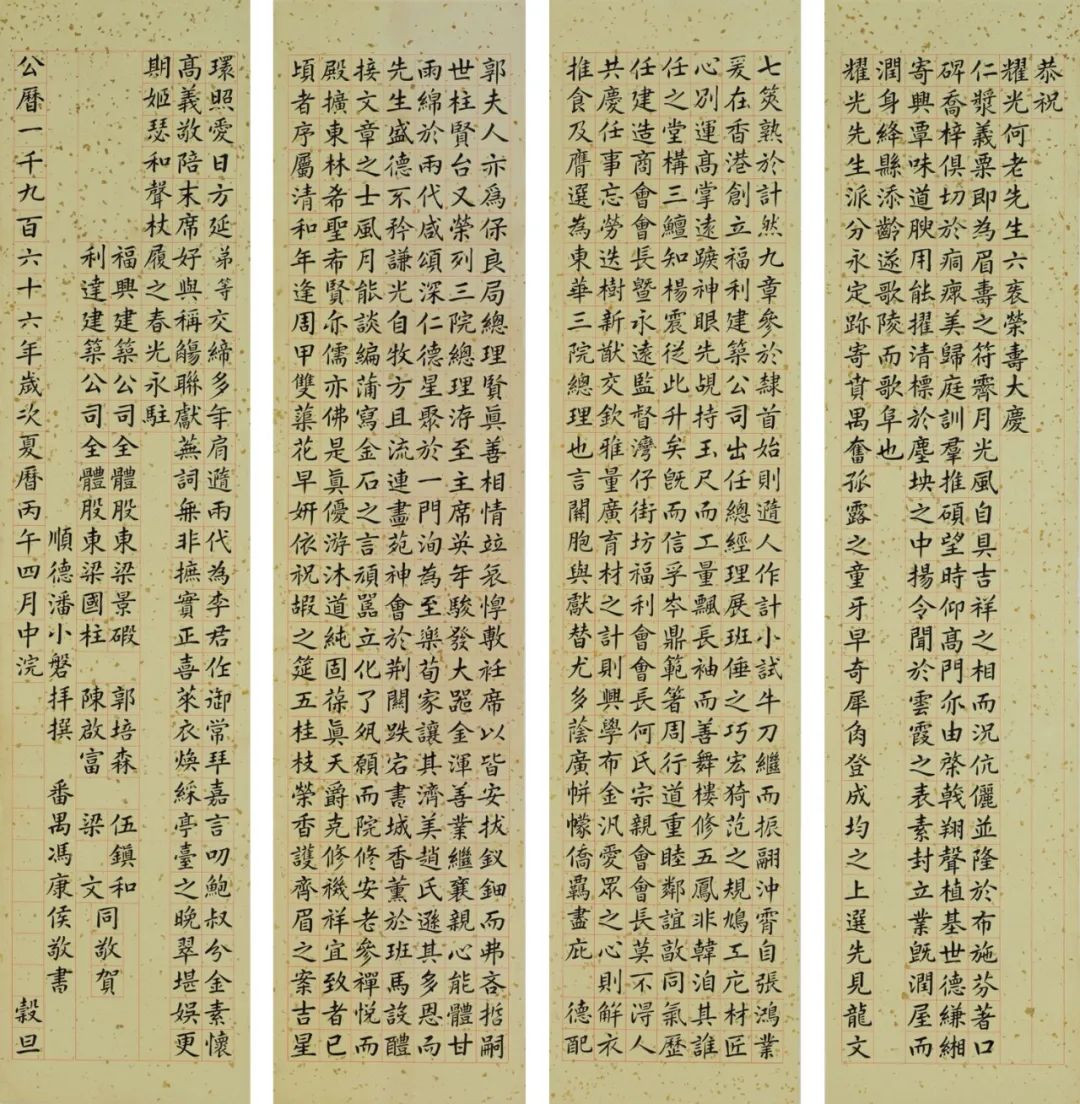 恭祝
耀光何老先生六袠榮壽大慶
仁漿義粟即為眉壽之符霽月光風自具吉祥之相而況伉儷並隆於布施芬著口
碑喬梓俱切於痌瘝美歸庭訓羣推碩望時仰高門亦由棨戟翔聲植基世德縑緗
寄興覃味道腴用能擢清標於塵坱之中揚令聞於雲霞之表素封立業既潤屋而
潤身絳縣添齡遂歌陵而歌阜也
耀光先生派分永定跡寄賁禺奮孤露之童牙早奇犀角登成均之上選先見龍文
七筴熟於計然九章參於隸首始則遊人作計小試牛刀繼而振翮沖霄自張鴻業
爰在香港創立福利建築公司出任總經理展班倕之巧宏猗范之規鳩工庀材匠
心別運高掌遠蹠神眼先覘持玉尺而工量飄長袖而善舞樓修五鳳非韓洎其誰
任之堂構三鱣知楊震從此升矣既而信孚岑鼎範箸周行道重睦鄰誼敦同氣歷
任建造商會會長暨永遠監督灣仔街坊福利會會長何氏宗親會會長莫不淂人
共慶任事忘勞迭樹新猷交欽雅量廣育材之計則興學布金汎愛眾之心則解衣
推食及膺選為東華三院總理也言關胞與獻替尤多蔭廣帡幪僑羈盡庇 德配
郭夫人亦為保良局總理賢眞善相情竝哀惸敷衽席以皆安拔釵鈿而弗吝哲嗣
世柱賢台又榮列三院總理洊至主席英年駿發大器金渾善業繼襄親心能體甘
雨綿於兩代咸頌深仁德星聚於一門洵為至樂荀家讓其濟美趙氏遜其多恩而
先生盛德不矜謙光自牧方且流連畫苑神會於荆關跌宕書城香薰於班馬設醴
接文章之士風月能談編蒲寫金石之言頑嚚立化了夙願而院修安老參禪悅而
殿擴東林希聖希賢亦儒亦佛是眞優游沐道純固葆眞天爵克修禨祥宜致者已
頃者序屬清和年逢周甲雙蕖花早妍依祝嘏之筵五桂枝榮香護齊眉之案吉星
環照愛日方延弟等交締多年肩隨兩代為李君作御常拜嘉言叨鮑叔分金素懷
高義敬陪末席好與稱觴聯獻蕪詞無非摭實正喜萊衣煥綵亭臺之晚翠堪娛更
期姬瑟和聲杖履之春光永駐
福興建築公司全體股東梁景礮 郭培森 伍鎮和
利達建築公司全體股東梁國柱 陳啟富 梁文 同敬賀
順德潘小磐拜撰 番禺馮康侯敬書
公曆一千九百六十六年歲次夏曆丙午四月中浣 穀旦